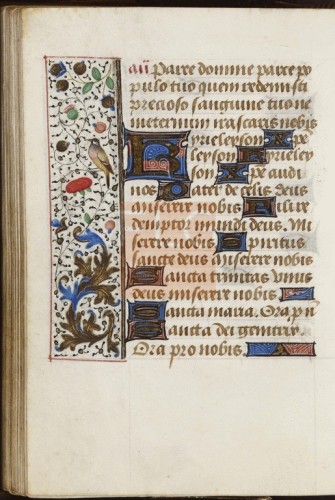 añ Parce domine parce po
pulo tuo quem redemisti
precioso sanguine tuo ne
ineternum irascaris nobis
Kyrieleyson Xpe
leyson Kyrieley
son Xpe audi
nos Pater de celis deus
miserere nobis Fili re
demptor mundi deus Mi
serere nobis Spiritus
sancte deus miserere nobis
Sancta trinitas unus
deus miserere nobis
Sancta maria. Ora p n
Sancta dei genitrix.
Ora pro nobis.